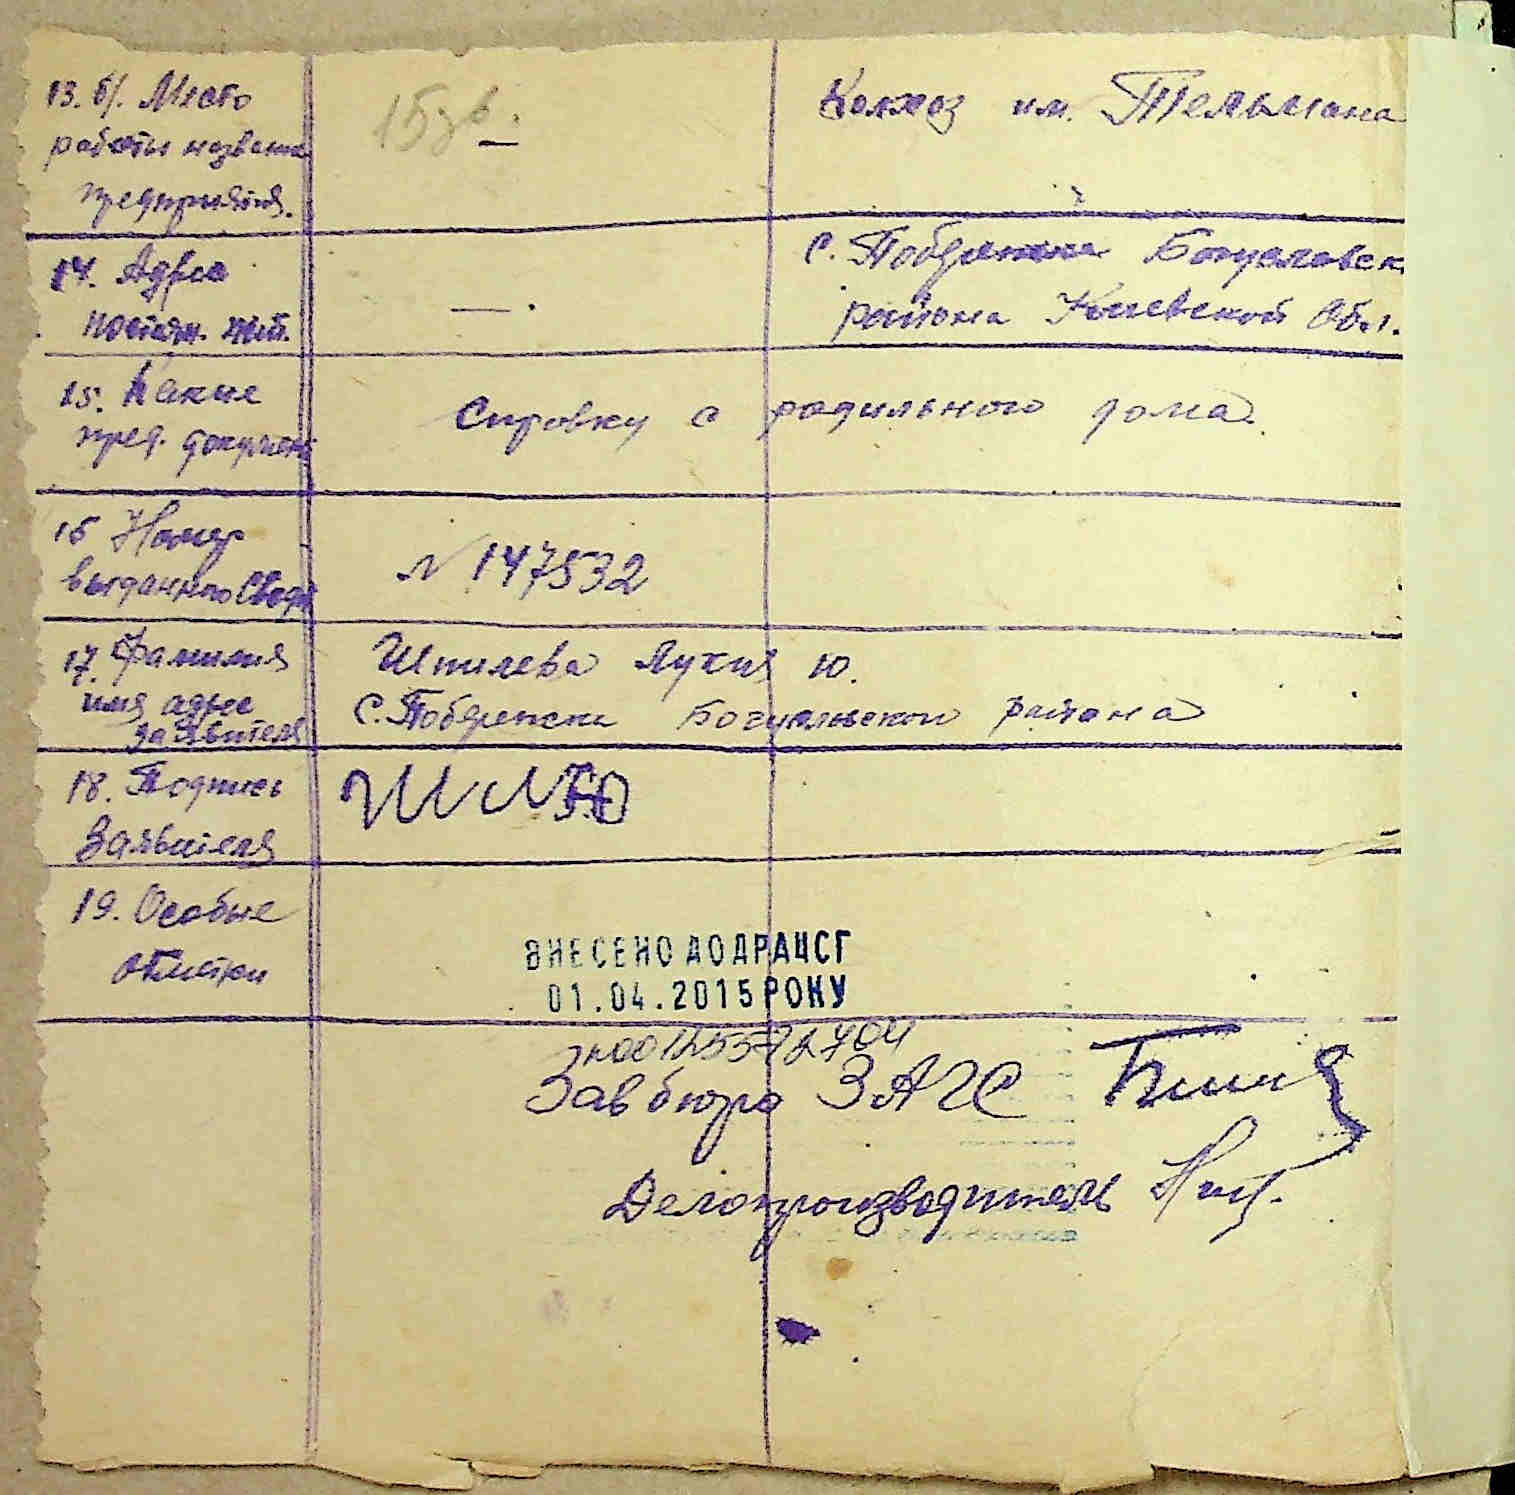 13. б/. Место
работы назван.
предприятия.
Колхоз им. Тельмана
14. Адрес
постоян. жит.
—.
С. Побережка Богуславск
района Киевской Обл.
15. Какие
пред. документ
Справку с родильного дома.
16 Номер
выданного Свид
N 147532
17. Фамилия
имя адрес
заявителя
Шпилева Лукия Ю.
С. Побережка Богуславской района
18. Подпись
Заявителя
19. Особые
отметки
ВНЕСЕНО ДО ДРАЦСГ
01.04.2015 РОКУ
Зав бюро ЗАГС
Делопроизводитель